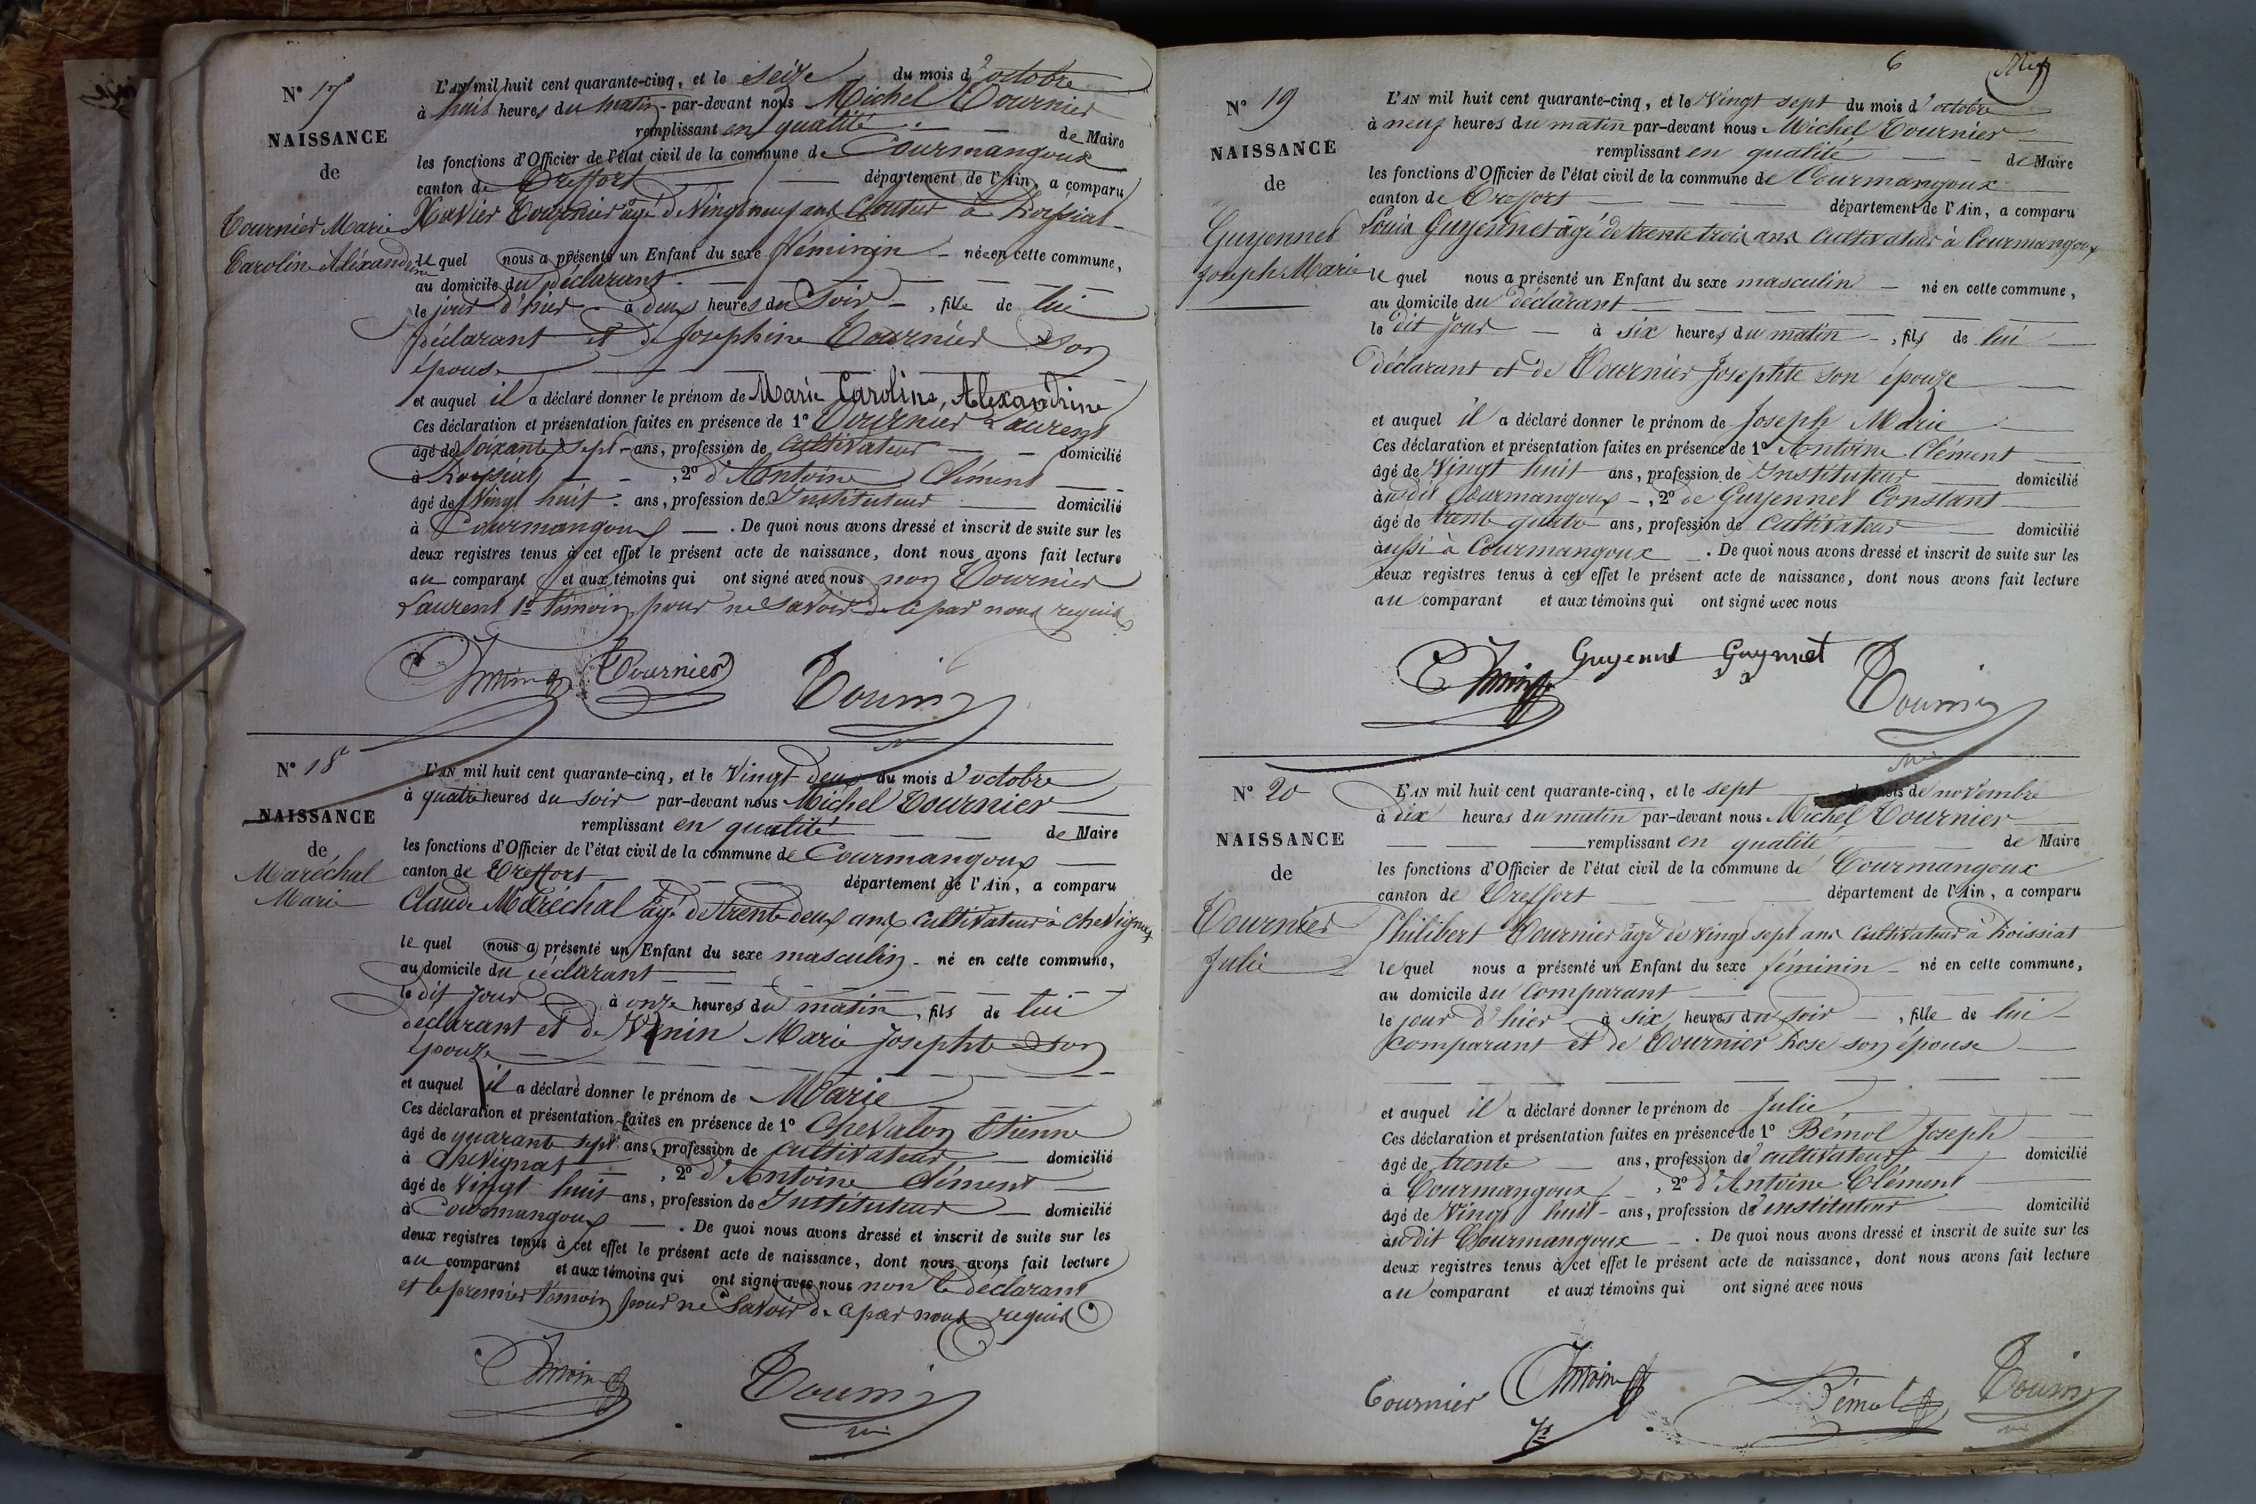 N° 17
NAISSANCE
de
Tournier Marie
Caroline Aléxandrine
L'AN mil huit cent quarante-cinq, et le seize du mois d'octobre
à huit heures du matin par-devant nous Michel Tournier
remplissant en qualité de Maire
les fonctions d'Officier de l'état civil de la commune de Courmangoux
canton de Treffort département de l'Ain, a comparu
Xavier Tournier âgé de Vingt neuf ans Cloutier à Roissiat
le quel nous a présenté un Enfant du sexe féminin née en cette commune,
au domicile du déclarant
le jour d'hier à deux heures du Soir, fille de lui
déclarant et de Josephine Tournier Son
épouse
et auquel il a déclaré donner le prénom de Marie Caroline, Alexandrine
Ces déclaration et présentation faites en présence de 1° Tournier Laurent
âgé de soixante sept ans, profession de cultivateur domicilié
à Roissiat, 2° d'Antoine Clément
âgé de Vingt huit ans, profession de Instituteur domicilié
à Courmangoux. De quoi nous avons dressé et inscrit de suite sur les
deux registres tenus à cet effet le présent acte de naissance, dont nous avons fait lecture
au comparant et aux témoins qui ont signé avec nous non Tournier
Laurent 1er témoin pour ne savoir de ce par nous requis
Antoine Tournier Tournier
N° 18
NAISSANCE
de
Maréchal
Marie
L'AN mil huit cent quarante-cinq, et le Vingt deux du mois d'octobre
à quatre heures du soir par-devant nous Michel Tournier
remplissant en qualité de Maire
les fonctions d'Officier de l'état civil de la commune de Courmangoux
canton de Treffort département de l'Ain, a comparu
Claude Maréchal âgé de trente deux ans cultivateur à Chevignat
le quel nous a présenté un Enfant du sexe masculin né en cette commune,
au domicile du déclarant
le dit jour à onze heures du matin, fils de lui
déclarant et de Venin Marie Josephte son
épouze
et auquel il a déclaré donner le prénom de Marie
Ces déclaration et présentation faites en présence de 1° Chevalon Etienne
âgé de quarante sept ans, profession de cultivateur domicilié
à Chevignat, 2° d'Antoine Clément
âgé de vingt huit ans, profession de Instituteur domicilié
à Courmangoux. De quoi nous avons dressé et inscrit de suite sur les
deux registres tenus à cet effet le présent acte de naissance, dont nous avons fait lecture
au comparant et aux témoins qui ont signé avec nous non le déclarant
et le premier témoin pour ne Savoir de ce par nous requis
Antoine Tournier
6
N° 19
NAISSANCE
de
Guyennet
Joseph Marie
L'AN mil huit cent quarante-cinq, et le Vingt sept du mois d'octobre
à neuf heures du matin par-devant nous Michel Tournier
remplissant en qualité de Maire
les fonctions d'Officier de l'état civil de la commune de Courmangoux
canton de Treffort département de l'Ain, a comparu
Louis Guyennet âgé de trente trois ans Cultivateur à Courmangoux
le quel nous a présenté un Enfant du sexe masculin né en cette commune,
au domicile du déclarant
le dit jour à six heures du matin, fils de lui
déclarant et de Tournier Josephte son épouze
et auquel il a déclaré donner le prénom de Joseph Marie
Ces déclaration et présentation faites en présence de 1° Antoine Clément
âgé de Vingt huit ans, profession de Instituteur domicilié
au dit Courmangoux, 2° de Guyennet Constant
âgé de trente quatre ans, profession de Cultivateur domicilié
aussi à Courmangoux. De quoi nous avons dressé et inscrit de suite sur les
deux registres tenus à cet effet le présent acte de naissance, dont nous avons fait lecture
au comparant et aux témoins qui ont signé avec nous
Antoine Guyennet Guyennet Tournier
N° 20
NAISSANCE
de
Tournier
Julie
L'AN mil huit cent quarante-cinq, et le sept du mois de novembre
à dix heures du matin par-devant nous Michel Tournier
remplissant en qualité de Maire
les fonctions d'Officier de l'état civil de la commune de Courmangoux
canton de Treffort département de l'Ain, a comparu
Philibert Tournier âgé de vingt sept ans Cultivateur à Roissiat
le quel nous a présenté un Enfant du sexe féminin né en cette commune,
au domicile du comparant
le jour d'hier à six heures du soir, fille de lui
comparant et de Tournier Rose son épouse
et auquel il a déclaré donner le prénom de Julie
Ces déclaration et présentation faites en présence de 1° Bémol Joseph
âgé de trente ans, profession de cultivateur domicilié
à Courmangoux, 2° d'Antoine Clément
âgé de Vingt huit ans, profession d'instituteur domicilié
au dit Courmangoux. De quoi nous avons dressé et inscrit de suite sur les
deux registres tenus à cet effet le présent acte de naissance, dont nous avons fait lecture
au comparant et aux témoins qui ont signé avec nous
Tournier Antoine Bémol Tournier